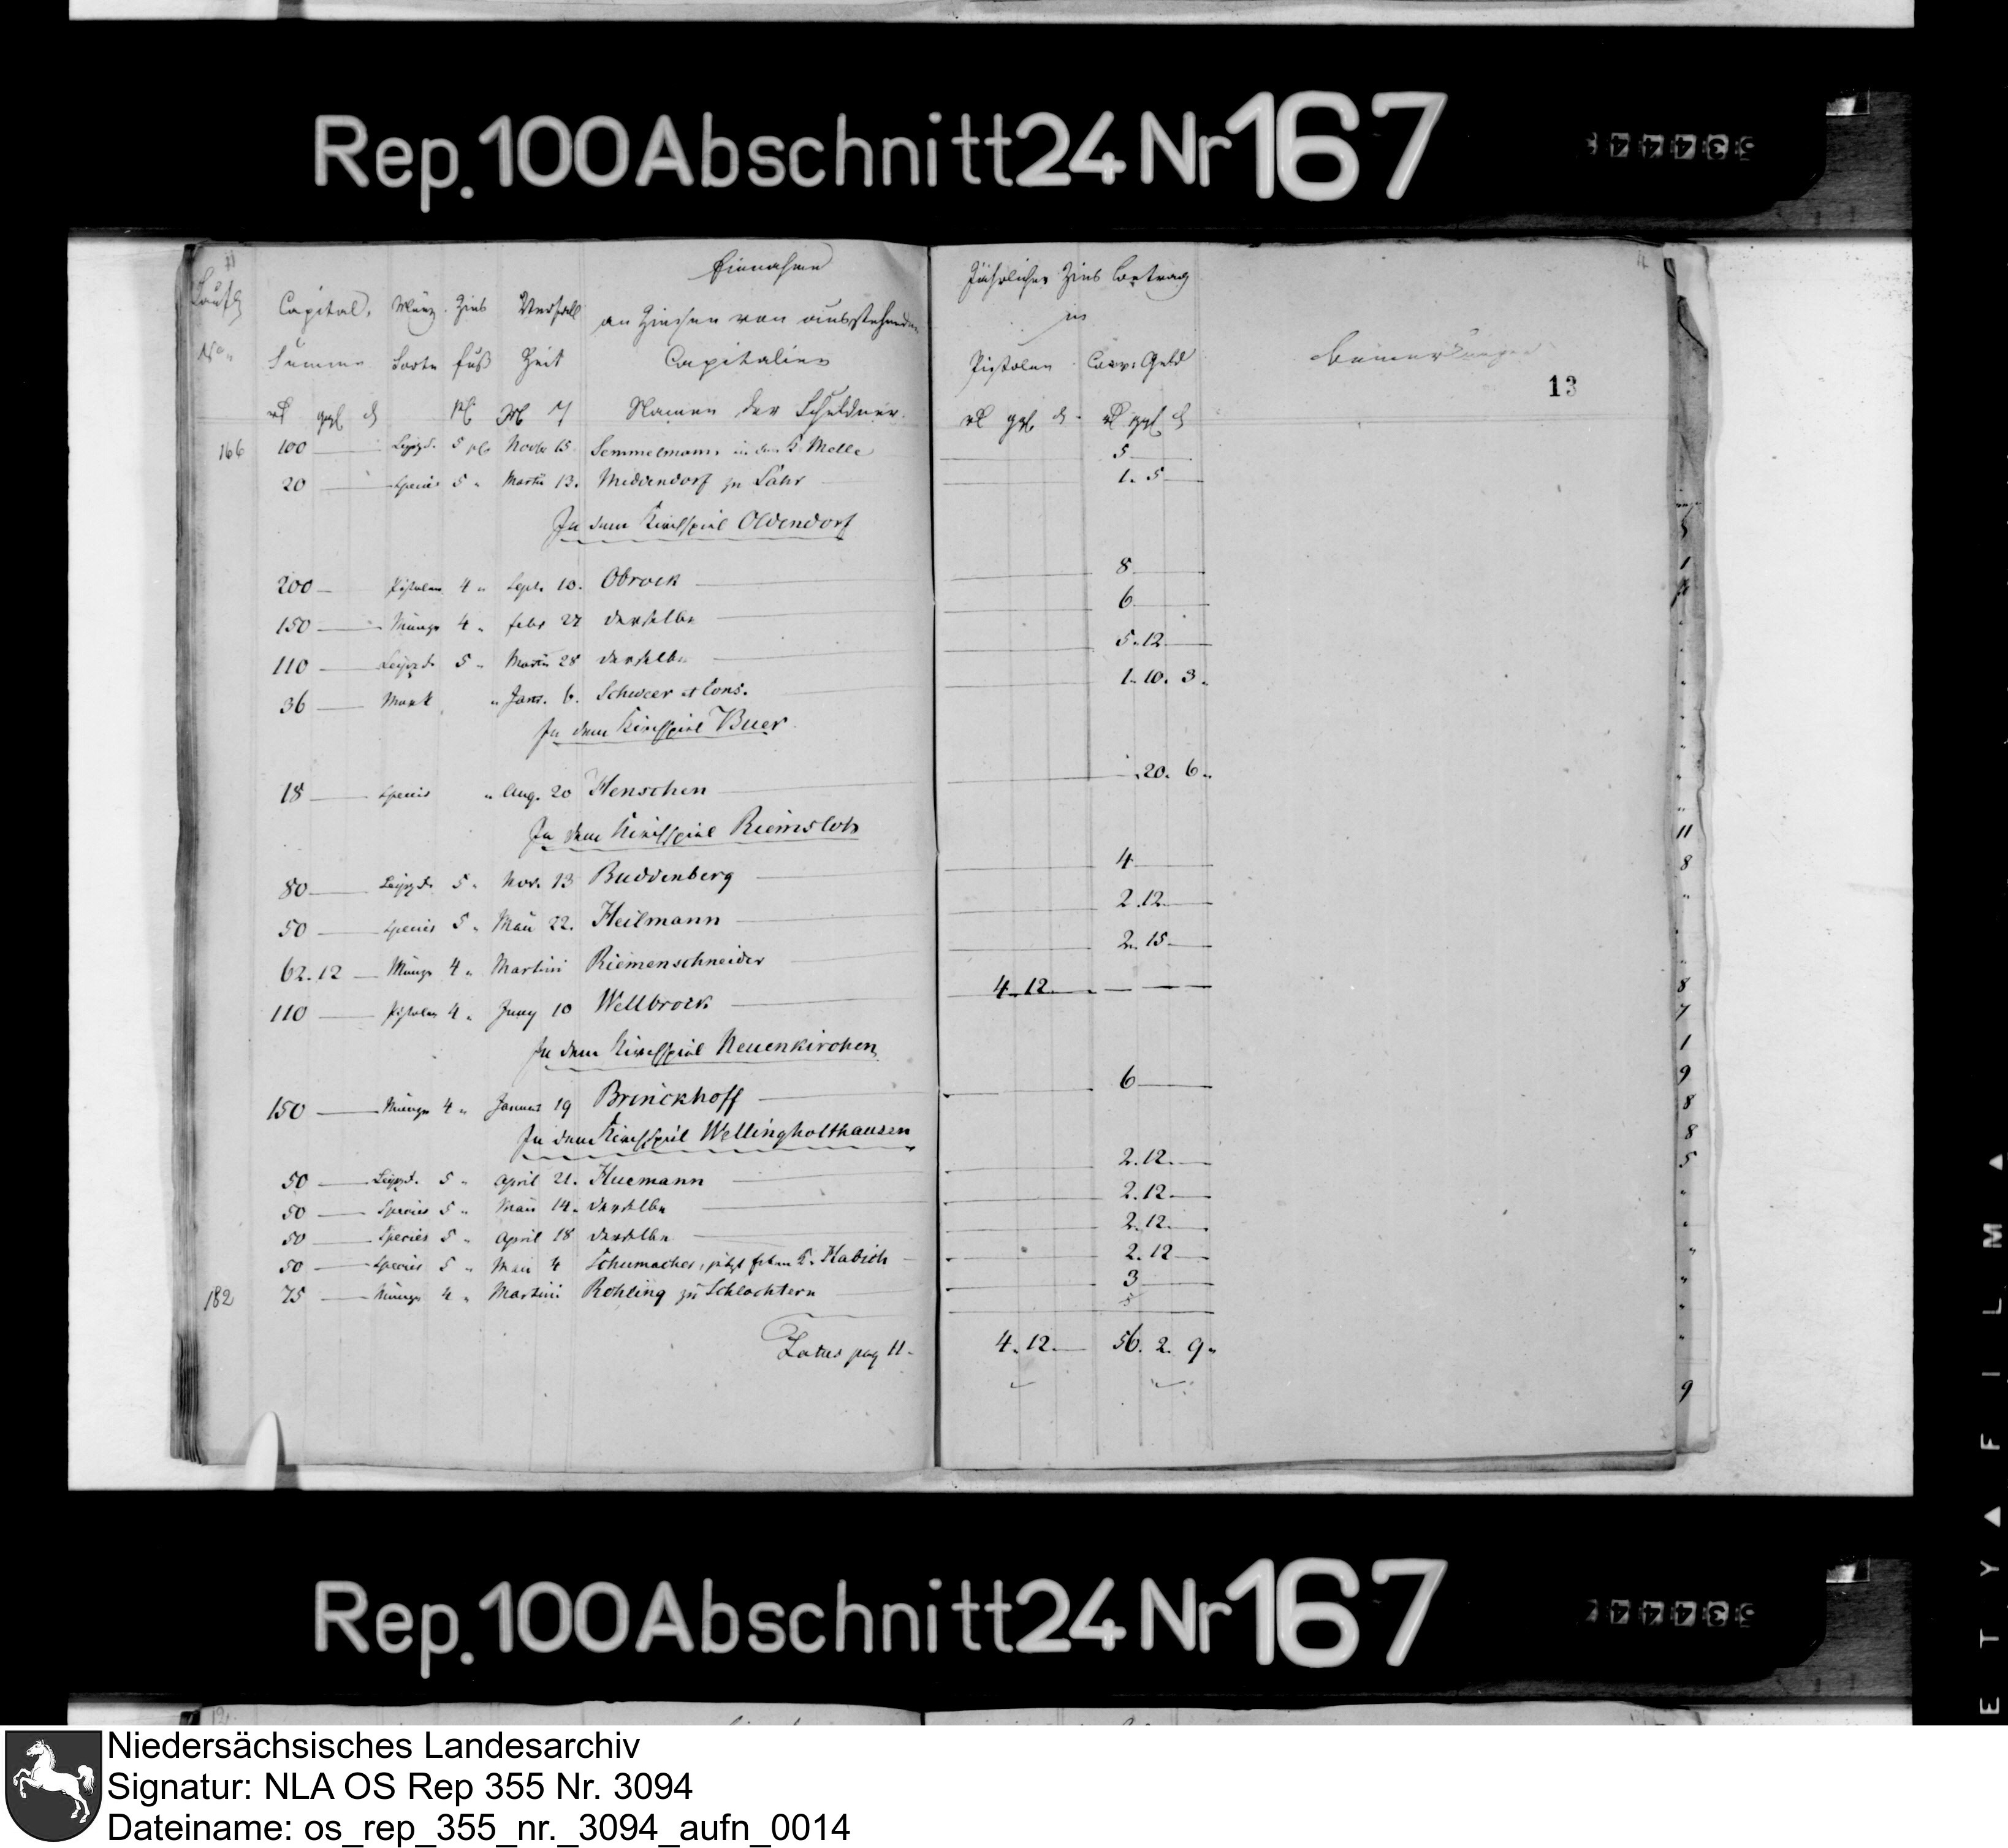 Rep. 100 Abschnitt 24 Nr 167
11
Einnahme
Capital. Münz Zins Verfall an Zinsen von ausstehenden
No. Summe Sorte fuß Zeit Capitalien
Namen der Schuldner.
Jährlicher Zins Betrag
in
Pistolen Cour: Geld
Bemerkungen
13
166 100 Leipzd. 5 pC Novbr 15. Semmelmann in Melle 5
20 Species 5 " Martii 13. Middendorf zu Laer 1. 5
In dem Kirchspiel Oldendorf
200 Pistolen 4 " Sept. 10. Obrock 8
150 Münze 4 " Febr 27 derselbe 6
110 Leipzd. 5 " Martii 28 derselbe 5. 12
36 Mark " Janr. 6. Schweer et Cons. 1. 10. 3.
In dem Kirchspiel Buer
18 Species " Aug. 20 Henschen 20. 6.
In dem Kirchspiel Riemsloh
80 Leipzd. 5 " Nov. 13 Buddenberg 4
50 Species 5 " Maii 22. Heilmann 2. 12
62. 12 Münze 4 " Martini Riemenschneider 2. 15
110 Pistolen 4 " Juny 10 Wellbrock 4. 12
In dem Kirchspiel Neuenkirchen
150 Münze 4 " Januar 19 Brinckhoff 6
In dem Kirchspiel Wellingholthausen
50 Leipzd. 5 " April 21. Huemann 2. 12
50 Species 5 " Maii 14. derselbe 2. 12
50 Species 5 " April 18 derselbe 2. 12
50 Species 5 " Maii 4 Schumacher, jetzt Kabich 2. 12
182 75 Münze 4 " Martini Rohling zu Schlochtern 3
Latus pag 11. 4. 12 56. 2. 9.
Rep. 100 Abschnitt 24 Nr 167
Niedersächsisches Landesarchiv
Signatur: NLA OS Rep 355 Nr. 3094
Dateiname: os_rep_355_nr._3094_aufn_0014